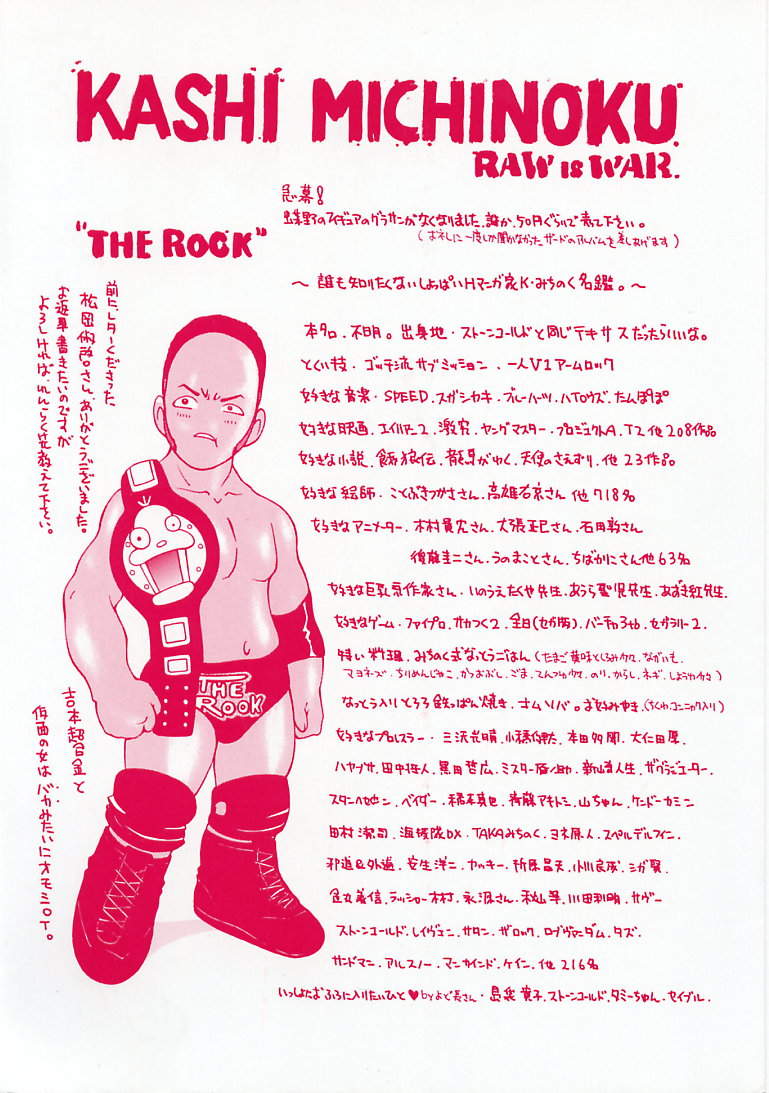 KASHI MICHINOKU
RAW IS WAR.
"THE ROCK"
急募!
蝶野のフィギュアのグラサンがなくなりました、誰か、50円ぐらいで売て下さい。
(お礼に一度しか聞かなかったザードのアルバムを差し上げます)
〜 誰も知りたくないしょっぱいHマンガ家K・みちのく名鑑。〜
本名・不明。出身地・ストーンコールドと同じテキサスだったらいいな。
とくい技・ゴッチ流サブミッション、一人V1アームロック
好きな音楽・SPEED、スガシカオ、ブルーハーツ、ハイロウズ、たんぽぽ
好きな映画、エイリアン2、激突、ヤングマスター、プロジェクトA、T2他208作品
好きな小説、餓狼伝、龍馬がゆく、天使のさえずり、他23作品
好きな絵師・ことぶきつかささん、高雄右京さん 他718名
好きなアニメーター、木村貴宏さん、大張正己さん、石田敦さん
後藤圭二さん、うのまことさん、ちばかにこさん他63名
好きな巨乳系作家さん・いのうえたくや先生、あうら聖児先生、あずき紅先生、
好きなゲーム・ファイプロ、サカつく2、全日(セガ版)、バーチャ3tb、セガラリー2、
特い料理、みちのく式なっとうごはん(たまご黄味とくるみ、ながいも、
マヨネーズ、ちりめんじゃこ、かつおぶし、ごま、てんつゆ、のり、からし、ネギ、しょうゆ)
なっとう入りとろろ鉄っぱん焼き、オムソバ、お好みやき(ちくわ、コンニャク入り)
好きなプロレスラー・三沢光晴、小橋健太、本田多聞、大仁田厚、
ハヤブサ、田中将人、黒田哲広、ミスター雁之助、新山勝人生、ザグラジエーター、
スタンハンセン、ベイダー、橋本真也、斉藤アキトシ、山ちゃん、ケンドーカシン
田村潔司、海坂DX、TAKAみちのく、ヨネ原人、スペルデルフィン、
邪道&外道、安生洋二、ヤッキー、折原昌夫、小川良成、シガ賢、
金丸義信、ラッシャー木村、永源さん、秋山準、川田利明、サブー
ストーンコールド、レイヴェン、サタン、ザロック、ロブヴァンダム、タズ、
サンドマン、アルスノー、マンカインド、ケイン、他216名
いっしょにおふろに入りたいひと♥byよど長さん・島袋寛子、ストーンコールド、タミーちゃん、セイブル、
前にレターくださった
松岡術啓さん、ありがとうございました。
お返事書きたいのですが
よろしければ、れんらく先教えて下さい。
吉本超合金と
仮面の女はバカみたいにオモシロイ。
THE ROCK